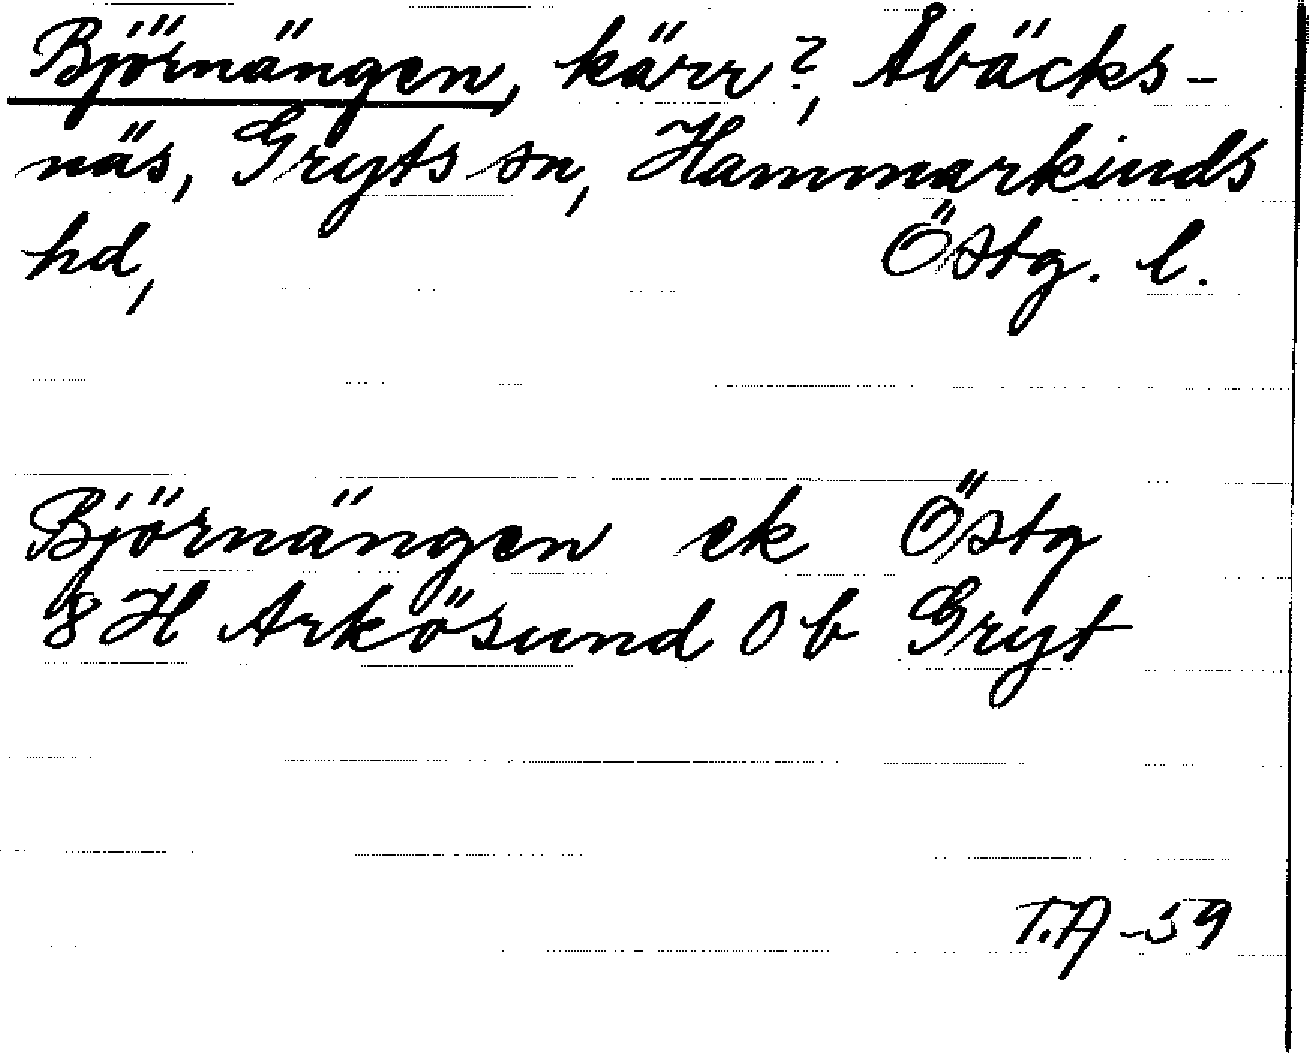 Björnängen, kärr?, Åbäcks-
näs, Gryts sn, Hammarkinds
hd, Östg. l.
Björnängen ek Östg
8 H Arkösund O b Gryt
T.A -59